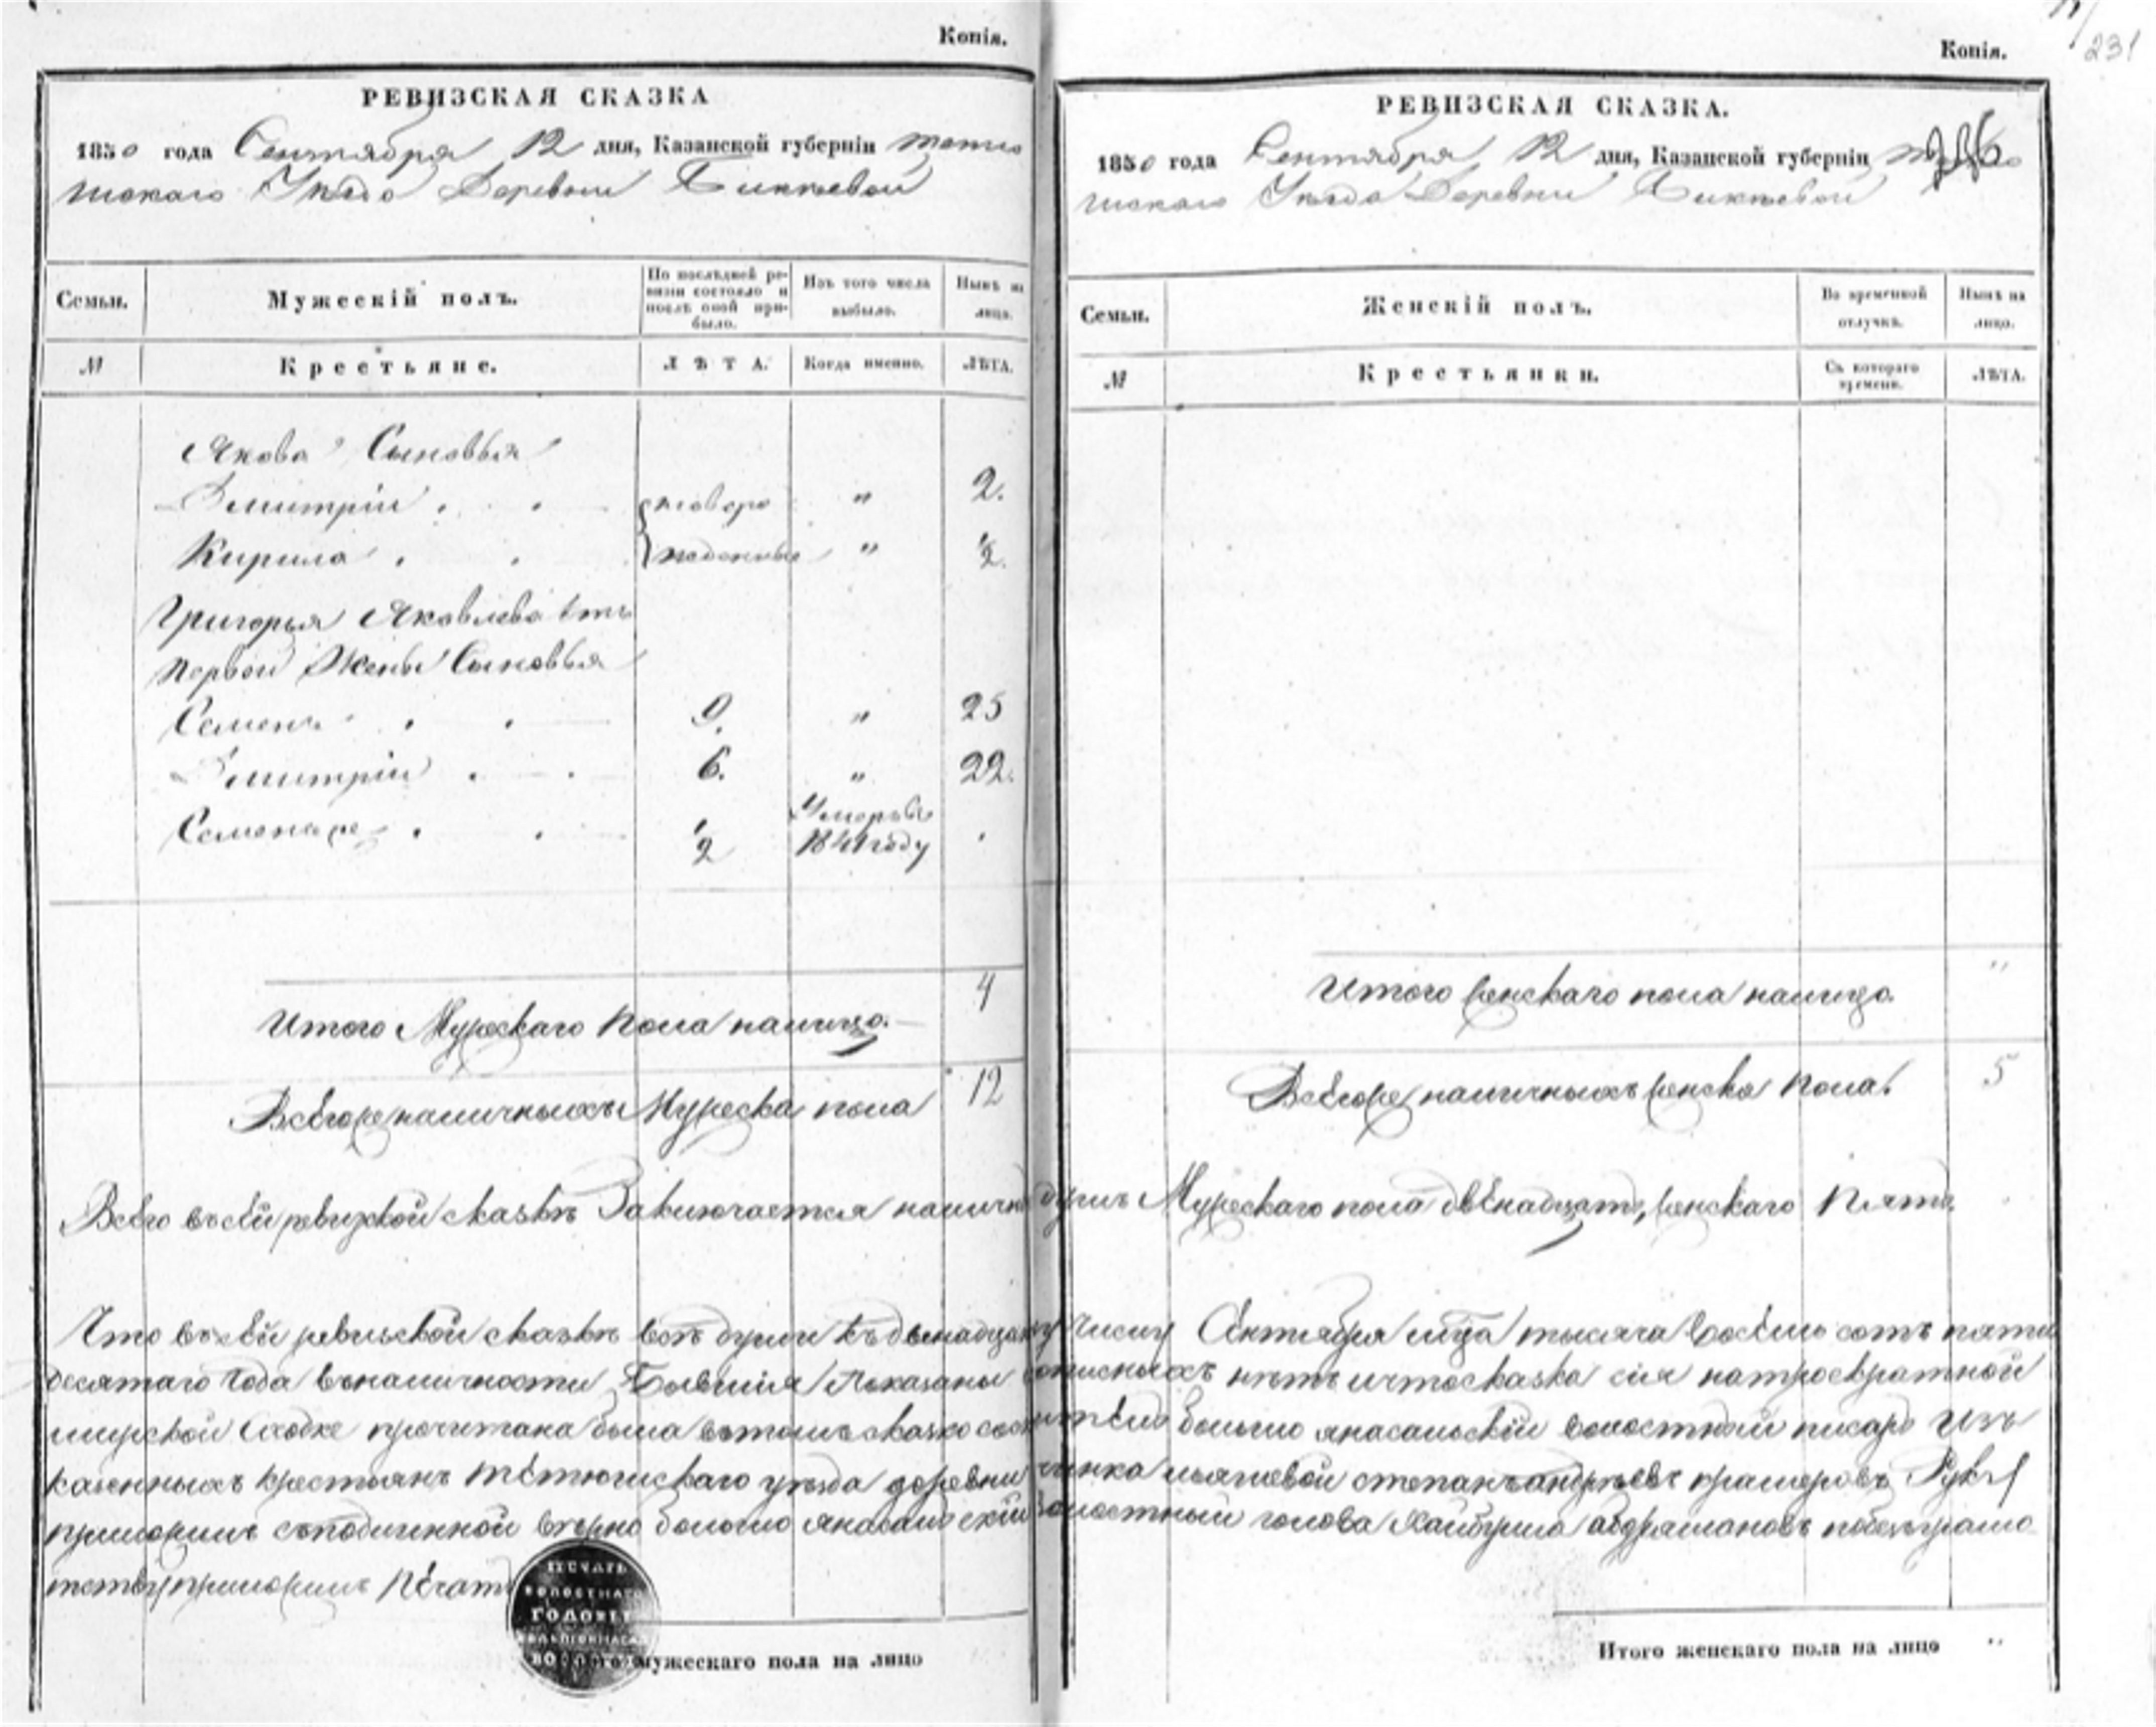 Копія.
РЕВИЗСКАЯ СКАЗКА
1850 года Сентября 12 дня, Казанской губерніи Тетю
шскаго Уѣзда Деревни Биктѣевой
Семьи.
Мужескій полъ.
По послѣдней ре-
визіи состояло и
послѣ оной при-
было.
Изъ того числа
выбыло.
Нынѣ на
лицо.
№
Крестьяне.
ЛѢТА.
Когда именно.
ЛѢТА.
Якова Сыновья
Дмитрій " 2.
Кирила " 1/2.
новоро
жденные
Григорья Яковлева отъ
первой Жены Сыновья
Семенъ 9. " 25
Дмитрій 6. " 22.
Семенже 1/2 Умеръ въ
1841 году
4
Итого Мужескаго пола налицо.
12
Всего же наличныхъ Мужеска пола
Копія.
231
РЕВИЗСКАЯ СКАЗКА.
1850 года Сентября 12 дня, Казанской губерніи
шскаго Уѣзда Деревни Биктѣевой
Семьи.
Женскій полъ.
Во временной
отлучкѣ.
Нынѣ на
лицо.
№
Крестьянки.
Съ котораго
времени.
ЛѢТА.
Итого женскаго пола налицо. "
Всего же наличныхъ женска пола. 5
Всего въ сей ревизкой сказкѣ Заключается налично душъ Мужескаго пола двенадцать, женскаго Пять
Что въ сей ревиской сказкѣ все души къ двенадцатому числу Сентября мца тысяча восемь сотъ пяти
десятаго года въ наличности Бывшія Показаны описныхъ нѣтъ и что сказка сія на троекратной
мирской сходке прочитана была въ томъ сказко больше янасальскій волостной писарь Изъ
казенныхъ крестьянъ тетюшскаго уѣзда деревни степанъ андрѣевъ Руку
приложилъ съ подлинной верно больше янасальскій волостный голова абдрашмановъ по безграмо
тству приложилъ печать
ПЕЧАТЬ
ВОЛОСТНАГО
ГОЛОВЫ
мужескаго пола на лицо
Итого женскаго пола на лицо "